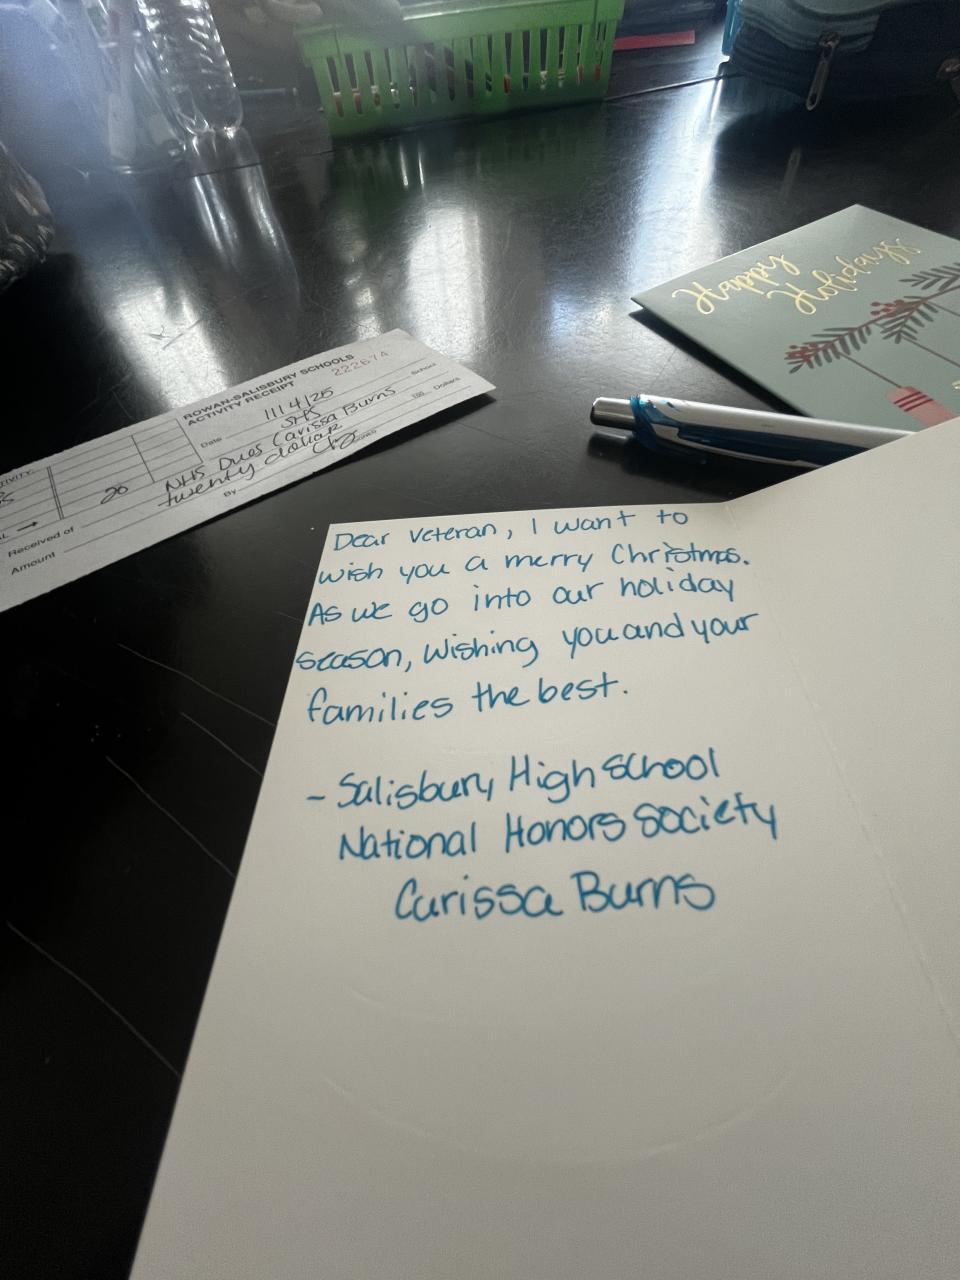 Happy
Holidays
ROWAN-SALISBURY SCHOOLS
ACTIVITY RECEIPT
222674
Date 11/4/25
SHS School
NHS Dues Carissa Burns
20 twenty dollar 100 Dollars
Received of
Amount
By
Dear Veteran, I want to
wish you a merry Christmas.
As we go into our holiday
season, wishing you and your
families the best.
- Salisbury High School
National Honors Society
Carissa Burns